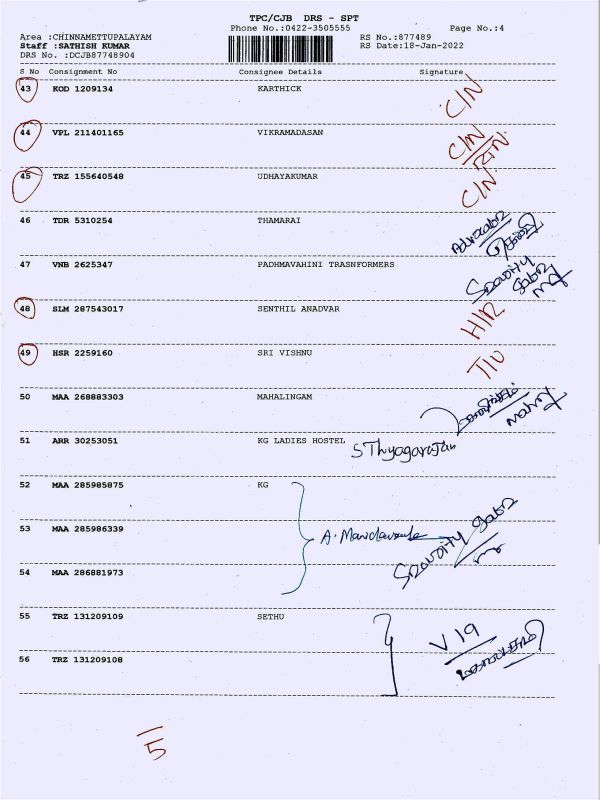 TPC/CJB DRS - SPT
Phone No.:0422-3505555
Page No.:4
Area :CHINNAMETTUPALAYAM
RS No.:877489
Staff :SATHISH KUMAR
RS Date:18-Jan-2022
DRS No. :DCJB87748904
S No Consignment No Consignee Details Signature
43 KOD 1209134 KARTHICK C/N
44 VPL 211401165 VIKRAMADASAN C/N
RTN.
45 TRZ 155640548 UDHAYAKUMAR C/N
46 TDR 5310254 THAMARAI
47 VNB 2625347 PADHMAVAHINI TRASNFORMERS
48 SLM 287543017 SENTHIL ANADVAR H/R
49 HSR 2259160 SRI VISHNU
50 MAA 268883303 MAHALINGAM
51 ARR 30253051 KG LADIES HOSTEL S Thyagarajan
52 MAA 285985875 KG
53 MAA 285986339
54 MAA 286881973
55 TRZ 131209109 SETHU
56 TRZ 131209108
5